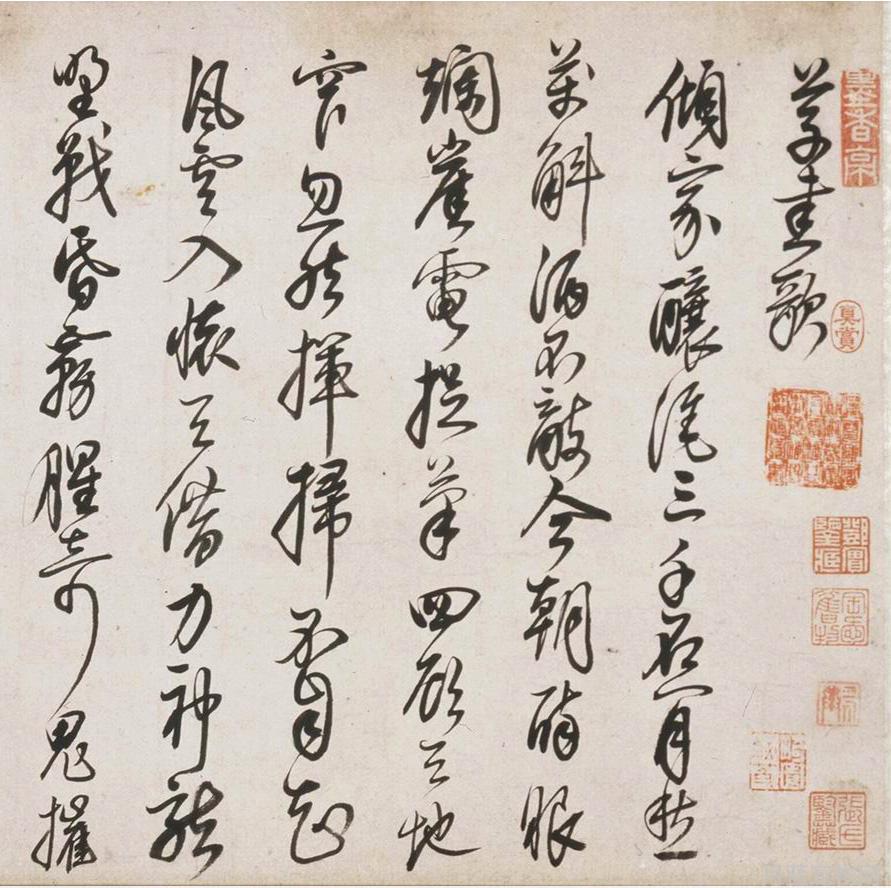 草書歌
傾家釀酒三千石閒愁
萬斛酒不敵今朝醉眼
爛崖電提筆四顧天地
窄忽然揮掃不自知
風雲入懷天借力神龍
野戰昏霧腥奇鬼摧
真賞